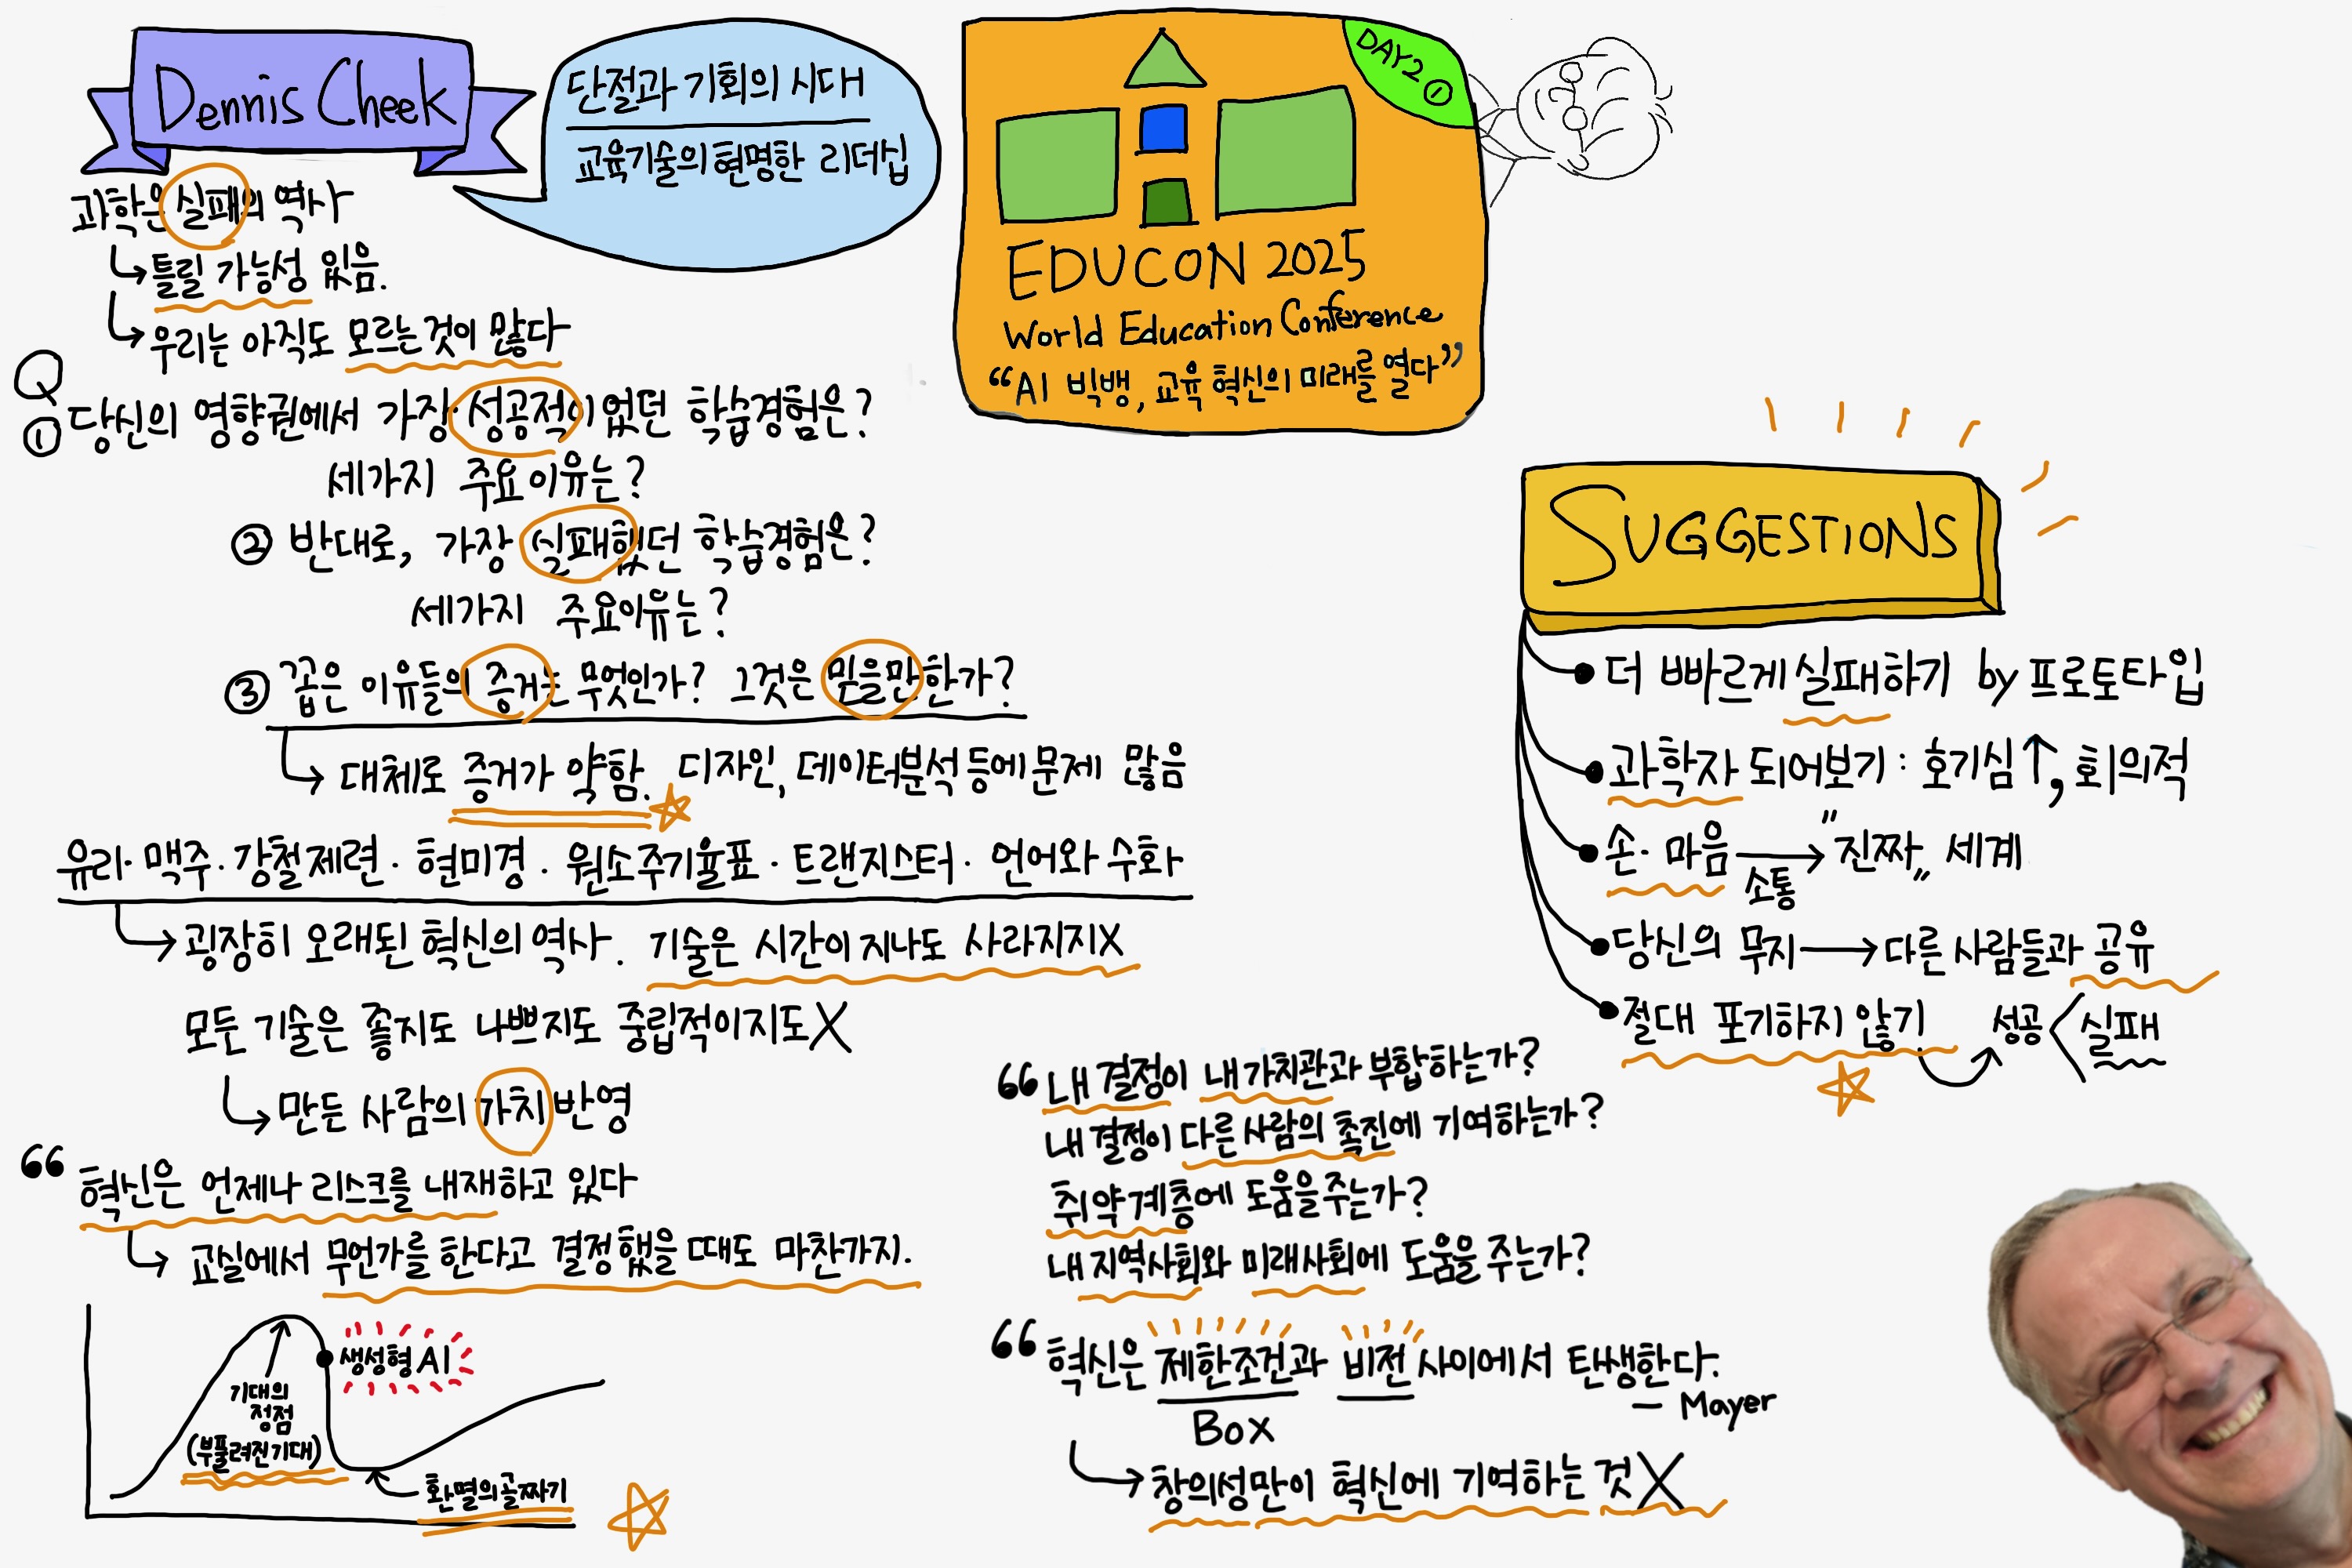 Dennis Cheek
단절과 기회의 시대
교육기술의 현명한 리더십
DAY2 ①
EDUCON 2025
World Education Conference
“AI 빅뱅, 교육 혁신의 미래를 열다”
과학은 실패의 역사
↳ 틀릴 가능성 있음.
↳ 우리는 아직도 모르는것이 많다
Q
① 당신의 영향권에서 가장 성공적이었던 학습경험은?
세가지 주요이유는?
② 반대로, 가장 실패했던 학습경험은?
세가지 주요이유는?
③ 꼽은 이유들의 증거는 무엇인가? 그것은 믿을만한가?
↳ 대체로 증거가 약함. 디자인, 데이터분석등에 문제 많음
유리·맥주·강철제련·현미경·원소주기율표·트랜지스터·언어와 수화
↳ 굉장히 오래된 혁신의 역사. 기술은 시간이 지나도 사라지지X
모든 기술은 좋지도 나쁘지도 중립적이지도X
↳ 만든 사람의 가치 반영
“ 혁신은 언제나 리스크를 내재하고 있다
↳ 교실에서 무언가를 한다고 결정했을 때도 마찬가지.
생성형AI
기대의
정점
(부풀려진기대)
환멸의골짜기
SUGGESTIONS
더 빠르게 실패하기 by 프로토타입
과학자 되어보기 : 호기심↑, 회의적
손·마음 → "진짜" 세계
소통
당신의 무지 → 다른 사람들과 공유
절대 포기하지 않기 성공 < 실패
“ 내 결정이 내 가치관과 부합하는가?
내 결정이 다른 사람의 촉진에 기여하는가?
취약계층에 도움을주는가?
내 지역사회와 미래사회에 도움을 주는가?
“ 혁신은 제한조건과 비전 사이에서 탄생한다.
— Mayer
Box
↳ 창의성만이 혁신에 기여하는 것X